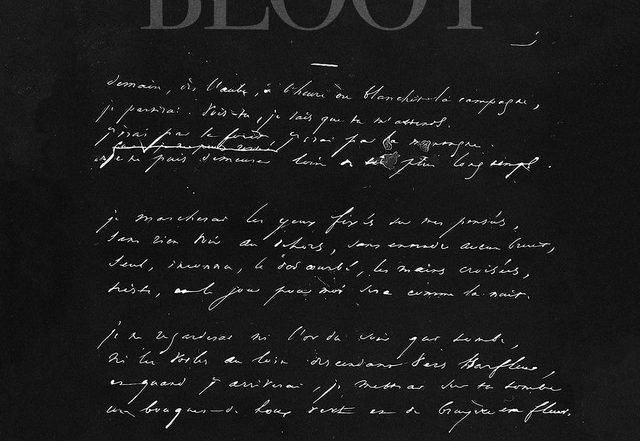 BLOOT
demain, dès l'aube, à l'heure où blanchit la campagne,
je partirai. Vois-tu, je sais que tu m'attends.
j'irai par la forêt, j'irai par la montagne.
je ne puis demeurer loin de toi plus longtemps.
je marcherai les yeux fixés sur mes pensées,
sans rien voir au dehors, sans entendre aucun bruit,
seul, inconnu, le dos courbé, les mains croisées,
triste, et le jour pour moi sera comme la nuit.
je ne regarderai ni l'or du soir qui tombe,
ni les voiles au loin descendant vers Harfleur,
et quand j'arriverai, je mettrai sur ta tombe
un bouquet de houx vert et de bruyère en fleur.